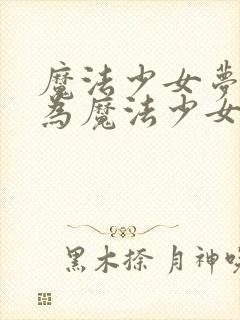 魔法少女夢
為魔法少女
黑木捺 月神